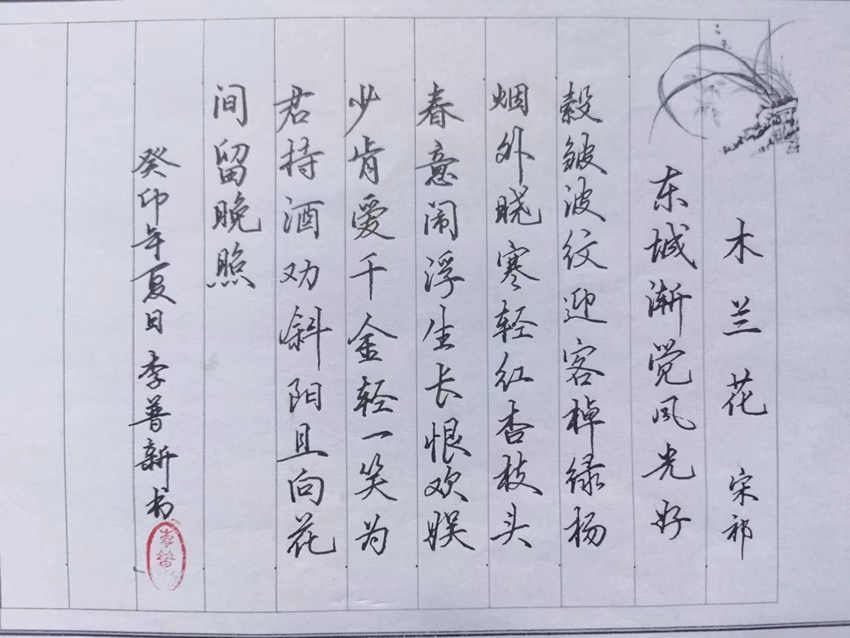 木兰花 宋祁
东城渐觉风光好
縠皱波纹迎客棹绿杨
烟外晓寒轻红杏枝头
春意闹浮生长恨欢娱
少肯爱千金轻一笑为
君持酒劝斜阳且向花
间留晚照
癸卯年夏日李普新书